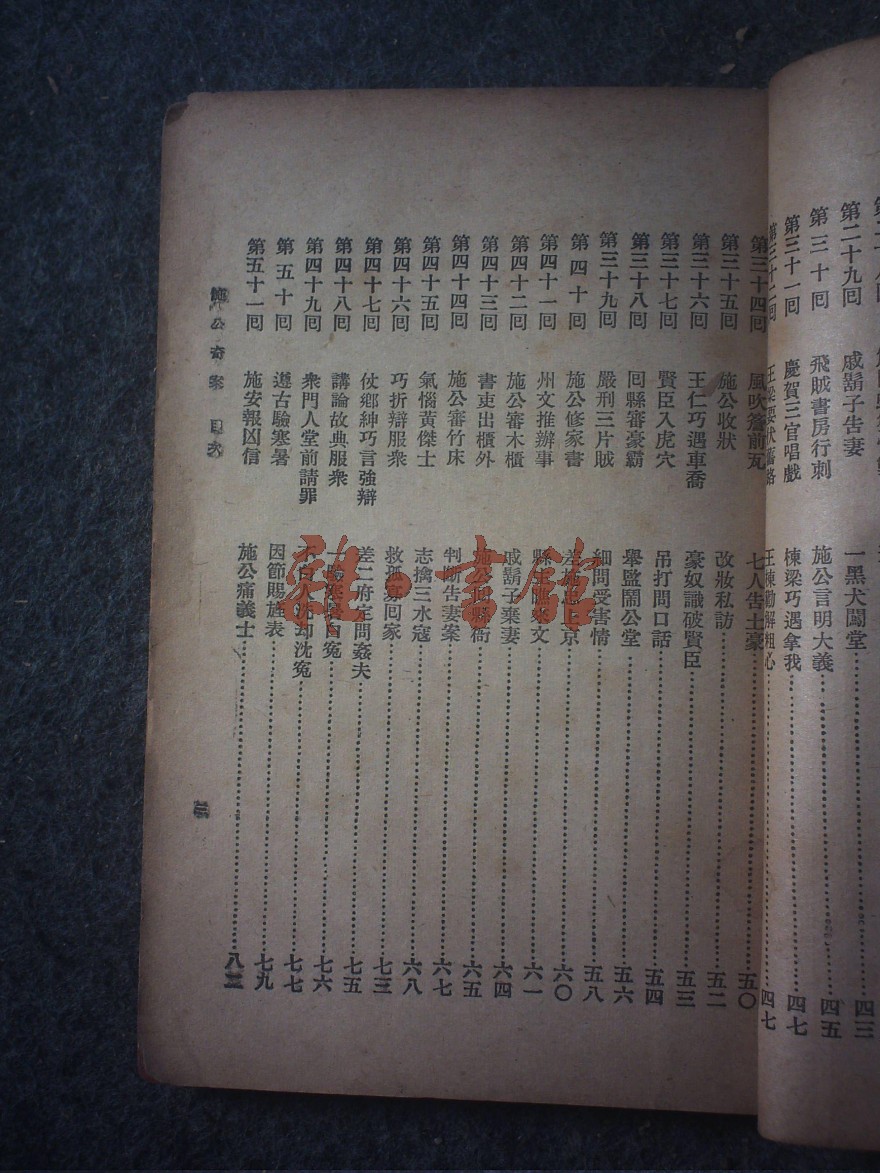 第二十九回 戚鬍子告妻 一黑犬闖堂 四三
第三十回 飛賊書房行刺 施公言明大義 四五
第三十一回 慶賀三官唱戲 棟梁巧遇拿我 四七
第三十二回 王棟勸解粗心 四七
第三十四回 風吹簷前瓦 七人告土豪 五〇
第三十五回 施公收狀 改妝私訪 五二
第三十六回 王仁巧遇車喬 豪奴識破賢臣 五三
第三十七回 賢臣入虎穴 吊打問口話 五四
第三十八回 回縣審豪霸 舉監鬧公堂 五六
第三十九回 嚴刑三片賊 細問受害情 五八
第四十回 施公修家書 差施忠上京 六〇
第四十一回 州文推辦事 縣主 來文 六一
第四十二回 施公審木櫃 戚鬍子棄妻 六四
第四十三回 書吏出櫃外 施公回縣衙 六五
第四十四回 施公審竹床 判斷告妻案 六七
第四十五回 氣惱黃傑士 志擒三水寇 六八
第四十六回 巧折辯服衆 救孤寡回家 七三
第四十七回 仗鄉紳巧言強辯 差二府定問姦夫 七五
第四十八回 講論故典服衆 一陽 冤 七六
第四十九回 衆門人堂前請罪 不白人洗却沈冤 七七
第五十回 遵古驗寒暑 因節賜旌表 七九
第五十一回 施安報凶信 施公痛義士 八三
施公奇案 目次
三
書館